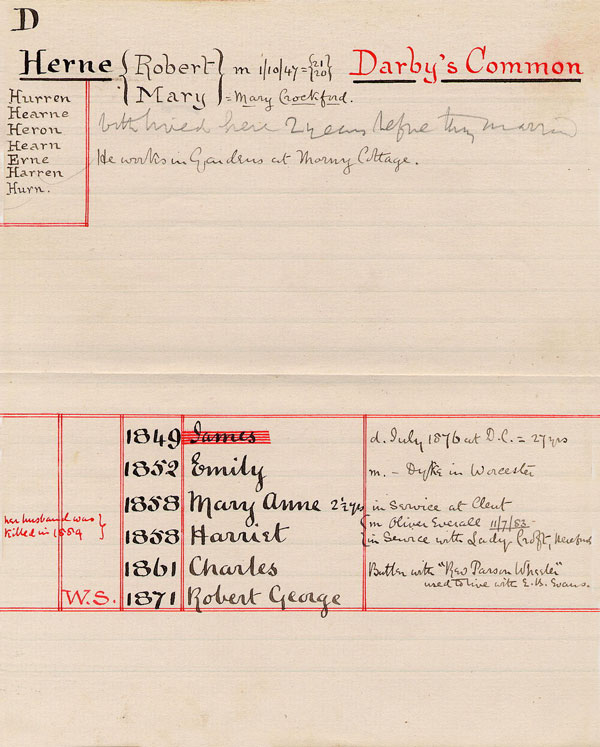 D
Herne { Robert } m 1/10/47 = {21 Darby's Common
{ Mary } {20}
= Mary Crockford.
Hurren
Hearne
Heron both lived here 2 years before they married
Hearn
Erne He works in Gardens at Morny Cottage.
Harren
Hurn.
1849 James d. July 1876 at D.C. = 27 yrs
1852 Emily m. - Dyke in Worcester
1858 Mary Anne 2½ yrs in Service at Clent
her husband was } m Oliver Everall 11/7/83
killed in 1884 1858 Harriet in Service with Lady Croft, Hereford
1861 Charles Butler with "Rev Parson Wheeler"
used to live with E.B. Evans.
W.S. 1871 Robert George